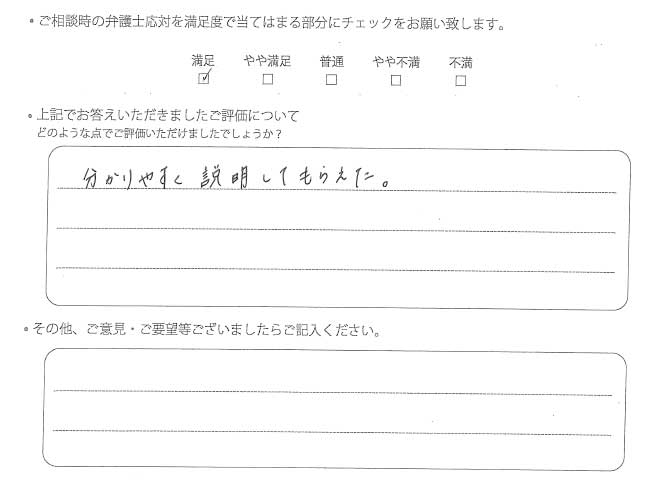 ・ご相談時の弁護士応対を満足度で当てはまる部分にチェックをお願い致します。
満足 やや満足 普通 やや不満 不満
☑ □ □ □ □
・上記でお答えいただきましたご評価について
どのような点でご評価いただけましたでしょうか？
分かりやすく説明してもらえた。
・その他、ご意見・ご要望等ございましたらご記入ください。